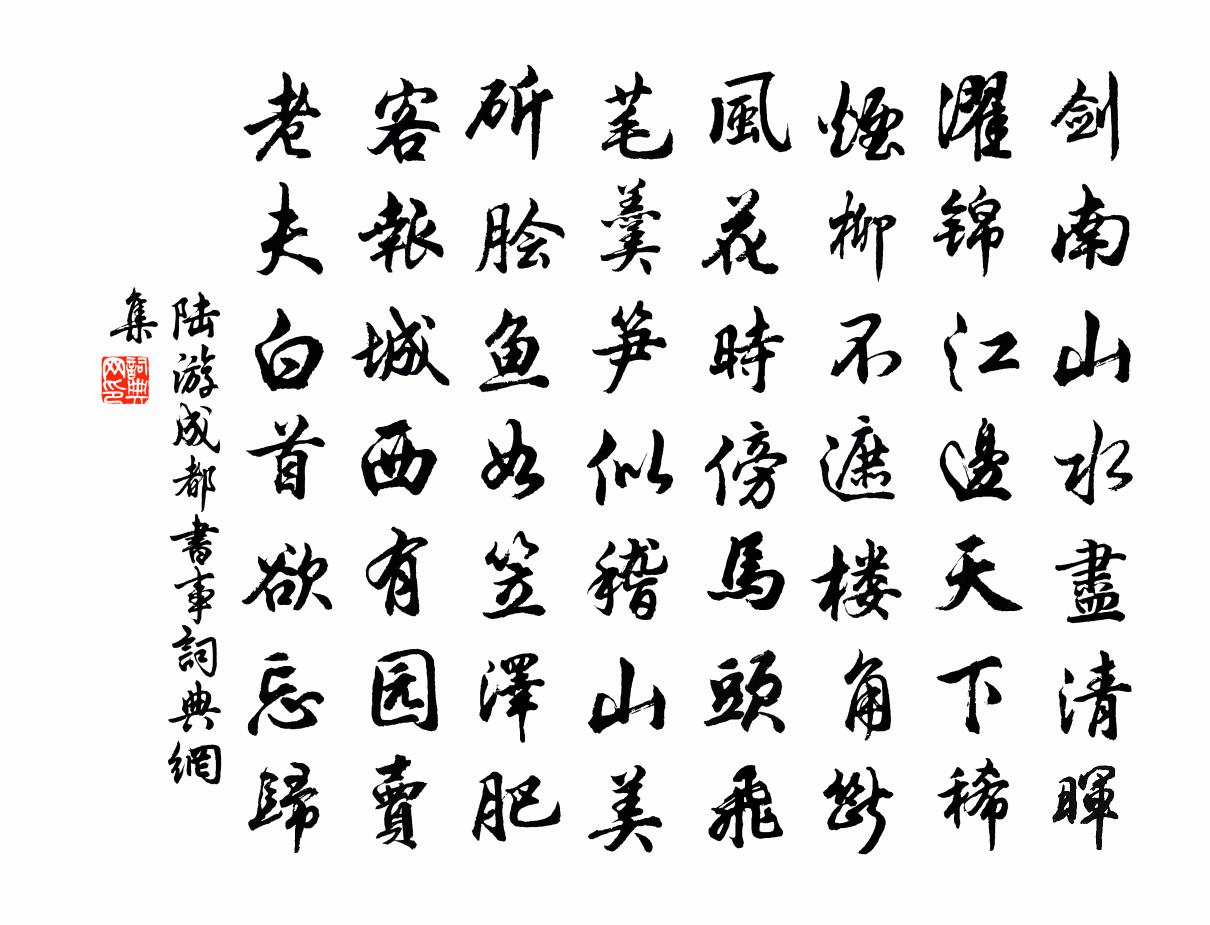 剑南山水盡清暉
濯锦江邊天下稀
煙柳不遮楼角斷
風花時傍馬頭飛
芼羹笋似稽山美
斫脍鱼如笠澤肥
客報城西有园賣
老夫白首欲忘歸
陆游成都書事詞典網
集
詞典网印